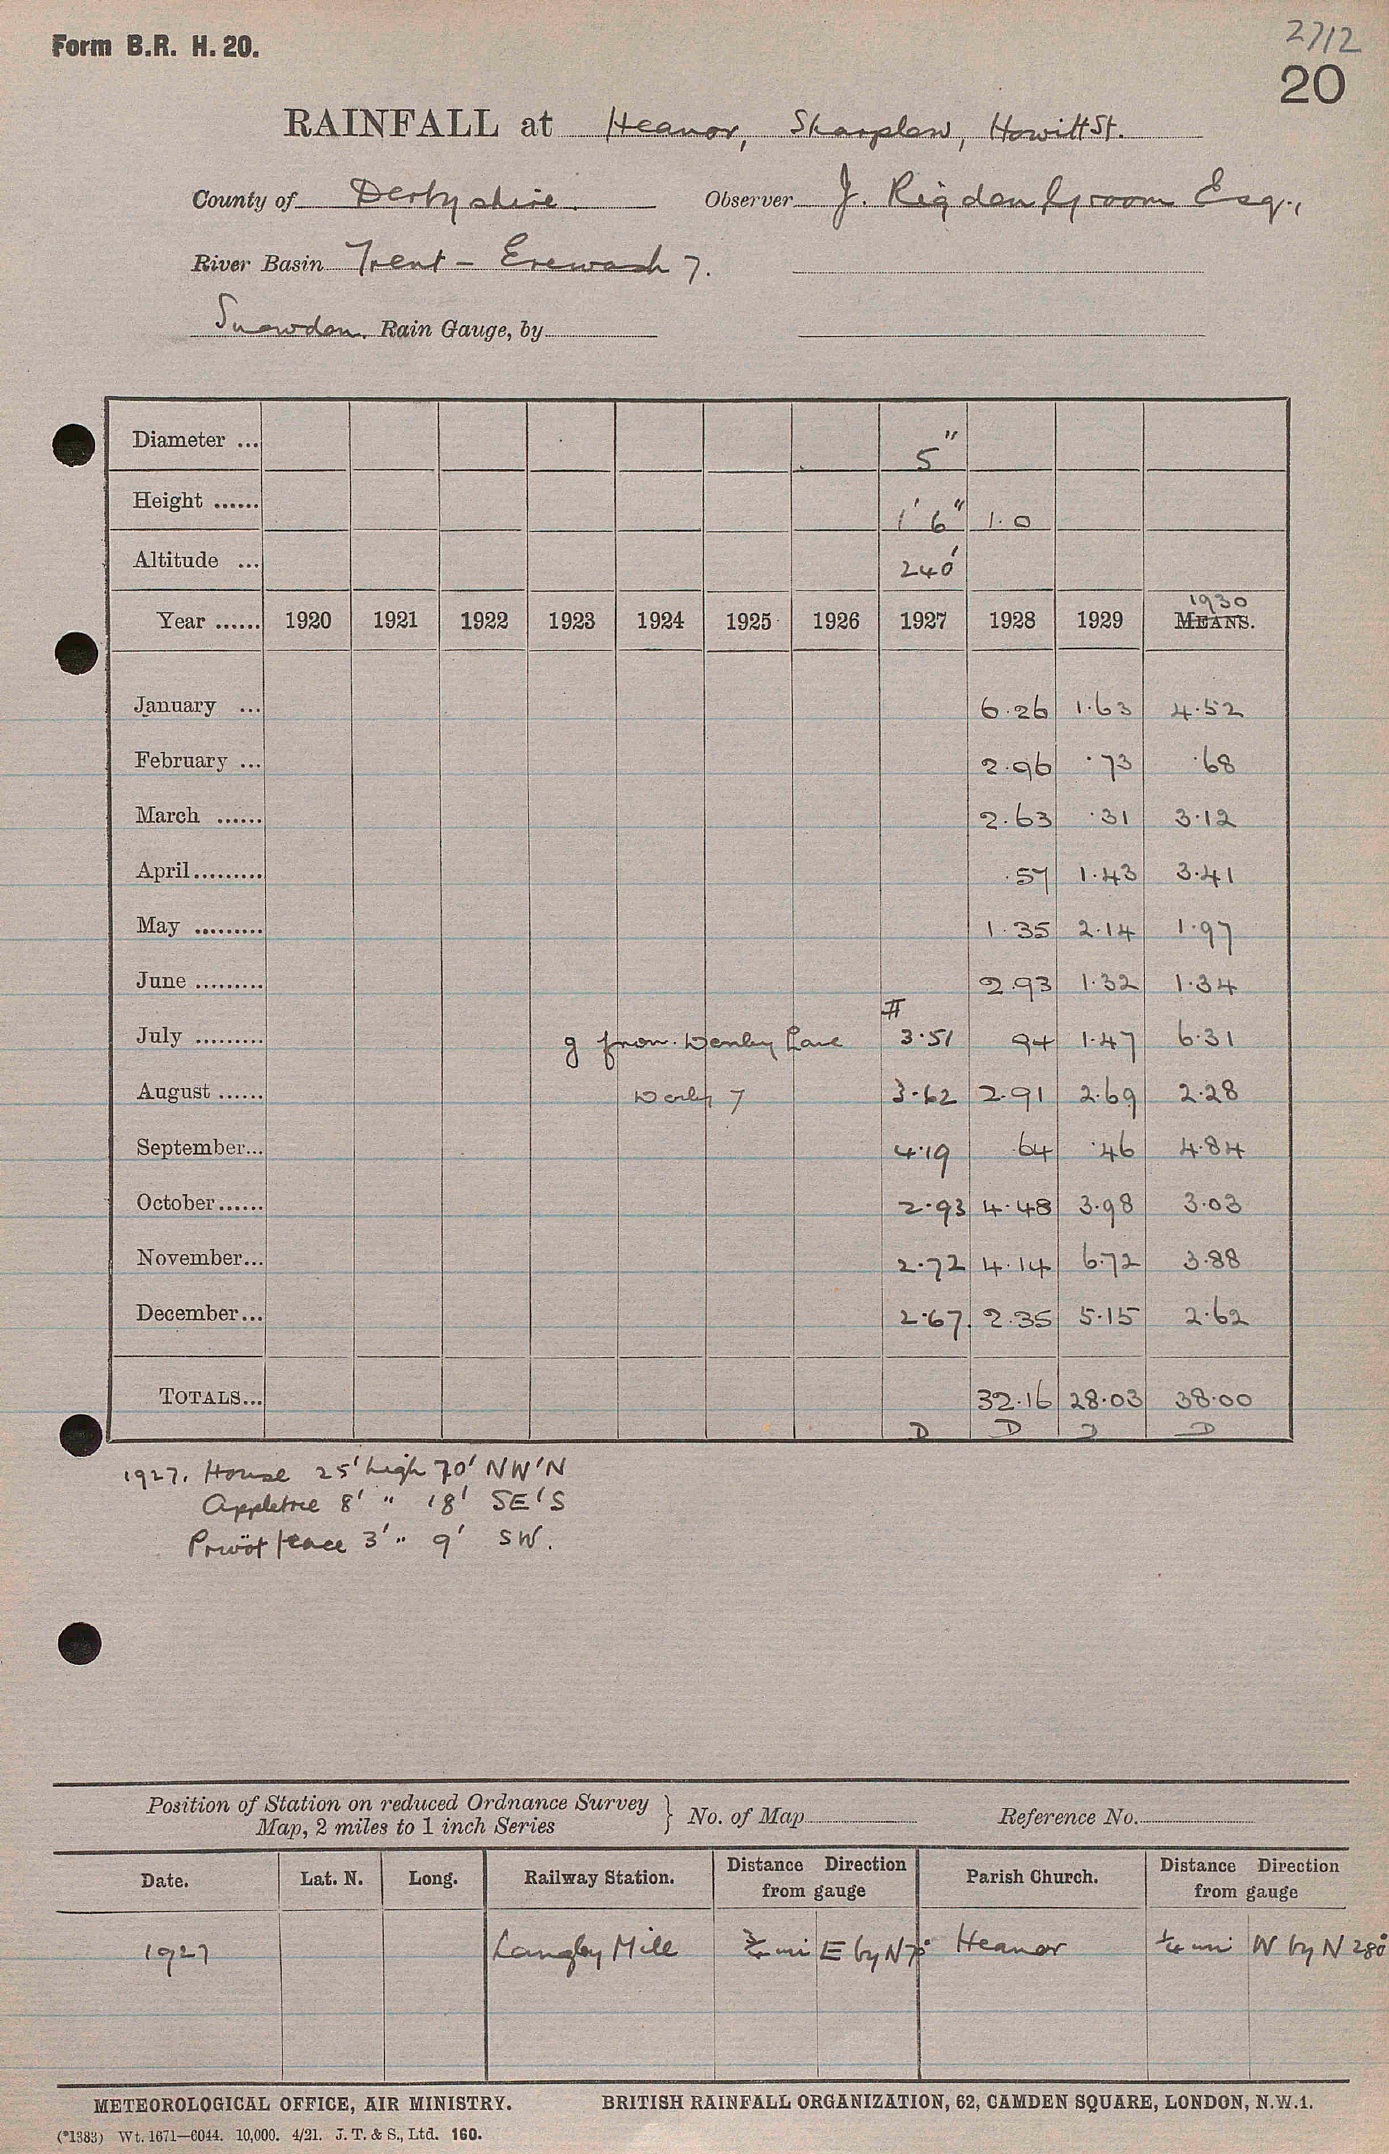 Form B.R. H. 20.
2712
20
RAINFALL at Heanor, Sharplow, Howitt St.
County of Derbyshire. Observer J. Rigden Groom Esq.,
River Basin Trent - Erewash 7.
Snowdon. Rain Gauge, by
Diameter ... 5"
Height ...... 1' 6" 1.0
Altitude ... 240'
Year ...... 1920 1921 1922 1923 1924 1925 1926 1927 1928 1929 1930 MEANS.
January ... 6.26 1.63 4.52
February ... 2.96 .73 .68
March ...... 2.63 .31 3.12
April......... .57 1.43 3.41
May ......... 1.35 2.14 1.97
June ......... 2.93 1.32 1.34
July ......... g from Denby Lane # 3.51 .94 1.47 6.31
August ...... 7 3.62 2.91 2.69 2.28
September... 4.19 .64 .46 4.84
October...... 2.93 4.48 3.98 3.03
November... 2.72 4.14 6.72 3.88
December... 2.67. 2.35 5.15 2.62
TOTALS... 32.16 28.03 38.00
D D D D
1927. House 25' high 70' NW'N
Appletree 8' " 18' SE'S
Privet fence 3' " 9' SW.
Position of Station on reduced Ordnance Survey
Map, 2 miles to 1 inch Series } No. of Map Reference No.
Date. Lat. N. Long. Railway Station. Distance Direction from gauge Parish Church. Distance Direction from gauge
1927 Langley Mill ¾ mi E by N 70° Heanor ¼ mi W by N 280°
METEOROLOGICAL OFFICE, AIR MINISTRY. BRITISH RAINFALL ORGANIZATION, 62, CAMDEN SQUARE, LONDON, N.W.1.
(*1383) Wt. 1671—6044. 10,000. 4/21. J. T. & S., Ltd. 160.